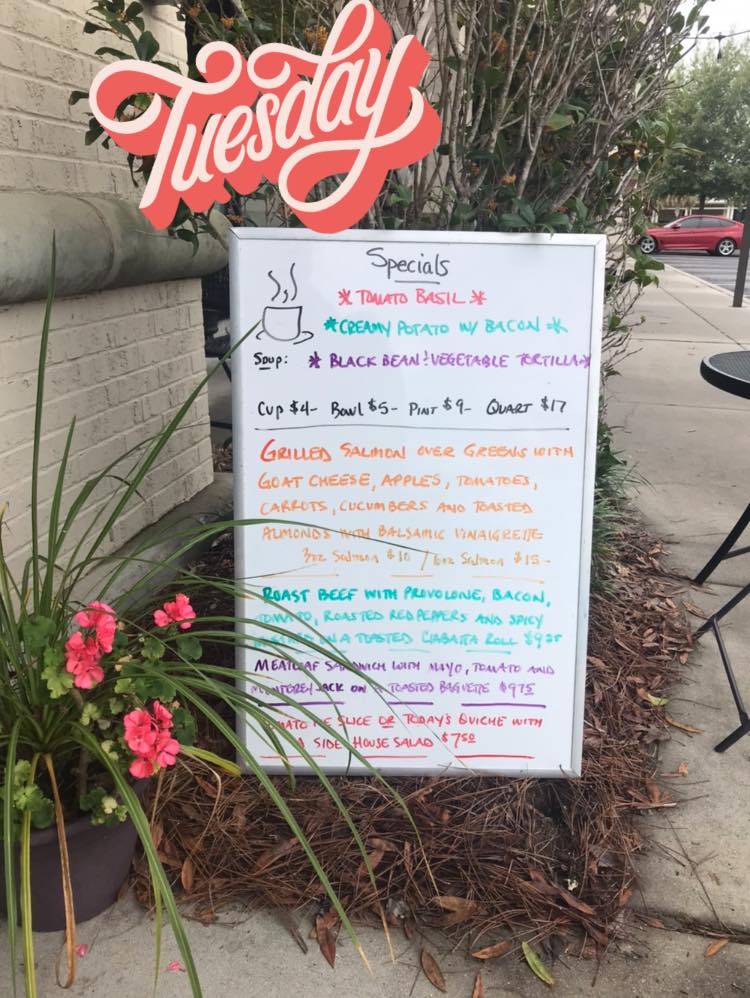 Tuesday
Specials
* TOMATO BASIL *
* CREAMY POTATO W/ BACON *
Soup: * BLACK BEAN & VEGETABLE TORTILLA *
Cup $4- Bowl $5- Pint $9- Quart $17
GRILLED SALMON OVER GREENS WITH
GOAT CHEESE, APPLES, TOMATOES,
CARROTS, CUCUMBERS AND TOASTED
ALMONDS WITH BALSAMIC VINAIGRETTE
3oz Salmon $10 / 6oz Salmon $15-
ROAST BEEF WITH PROVOLONE, BACON,
TOMATO, ROASTED RED PEPPERS AND SPICY
ON A TOASTED CIABATTA ROLL
MEATLOAF SANDWICH WITH MAYO, TOMATO AND
MONTEREY JACK ON A TOASTED BAGUETTE $9.75
TOMATO PIE SLICE OR TODAY'S QUICHE WITH
A SIDE HOUSE SALAD $7.50